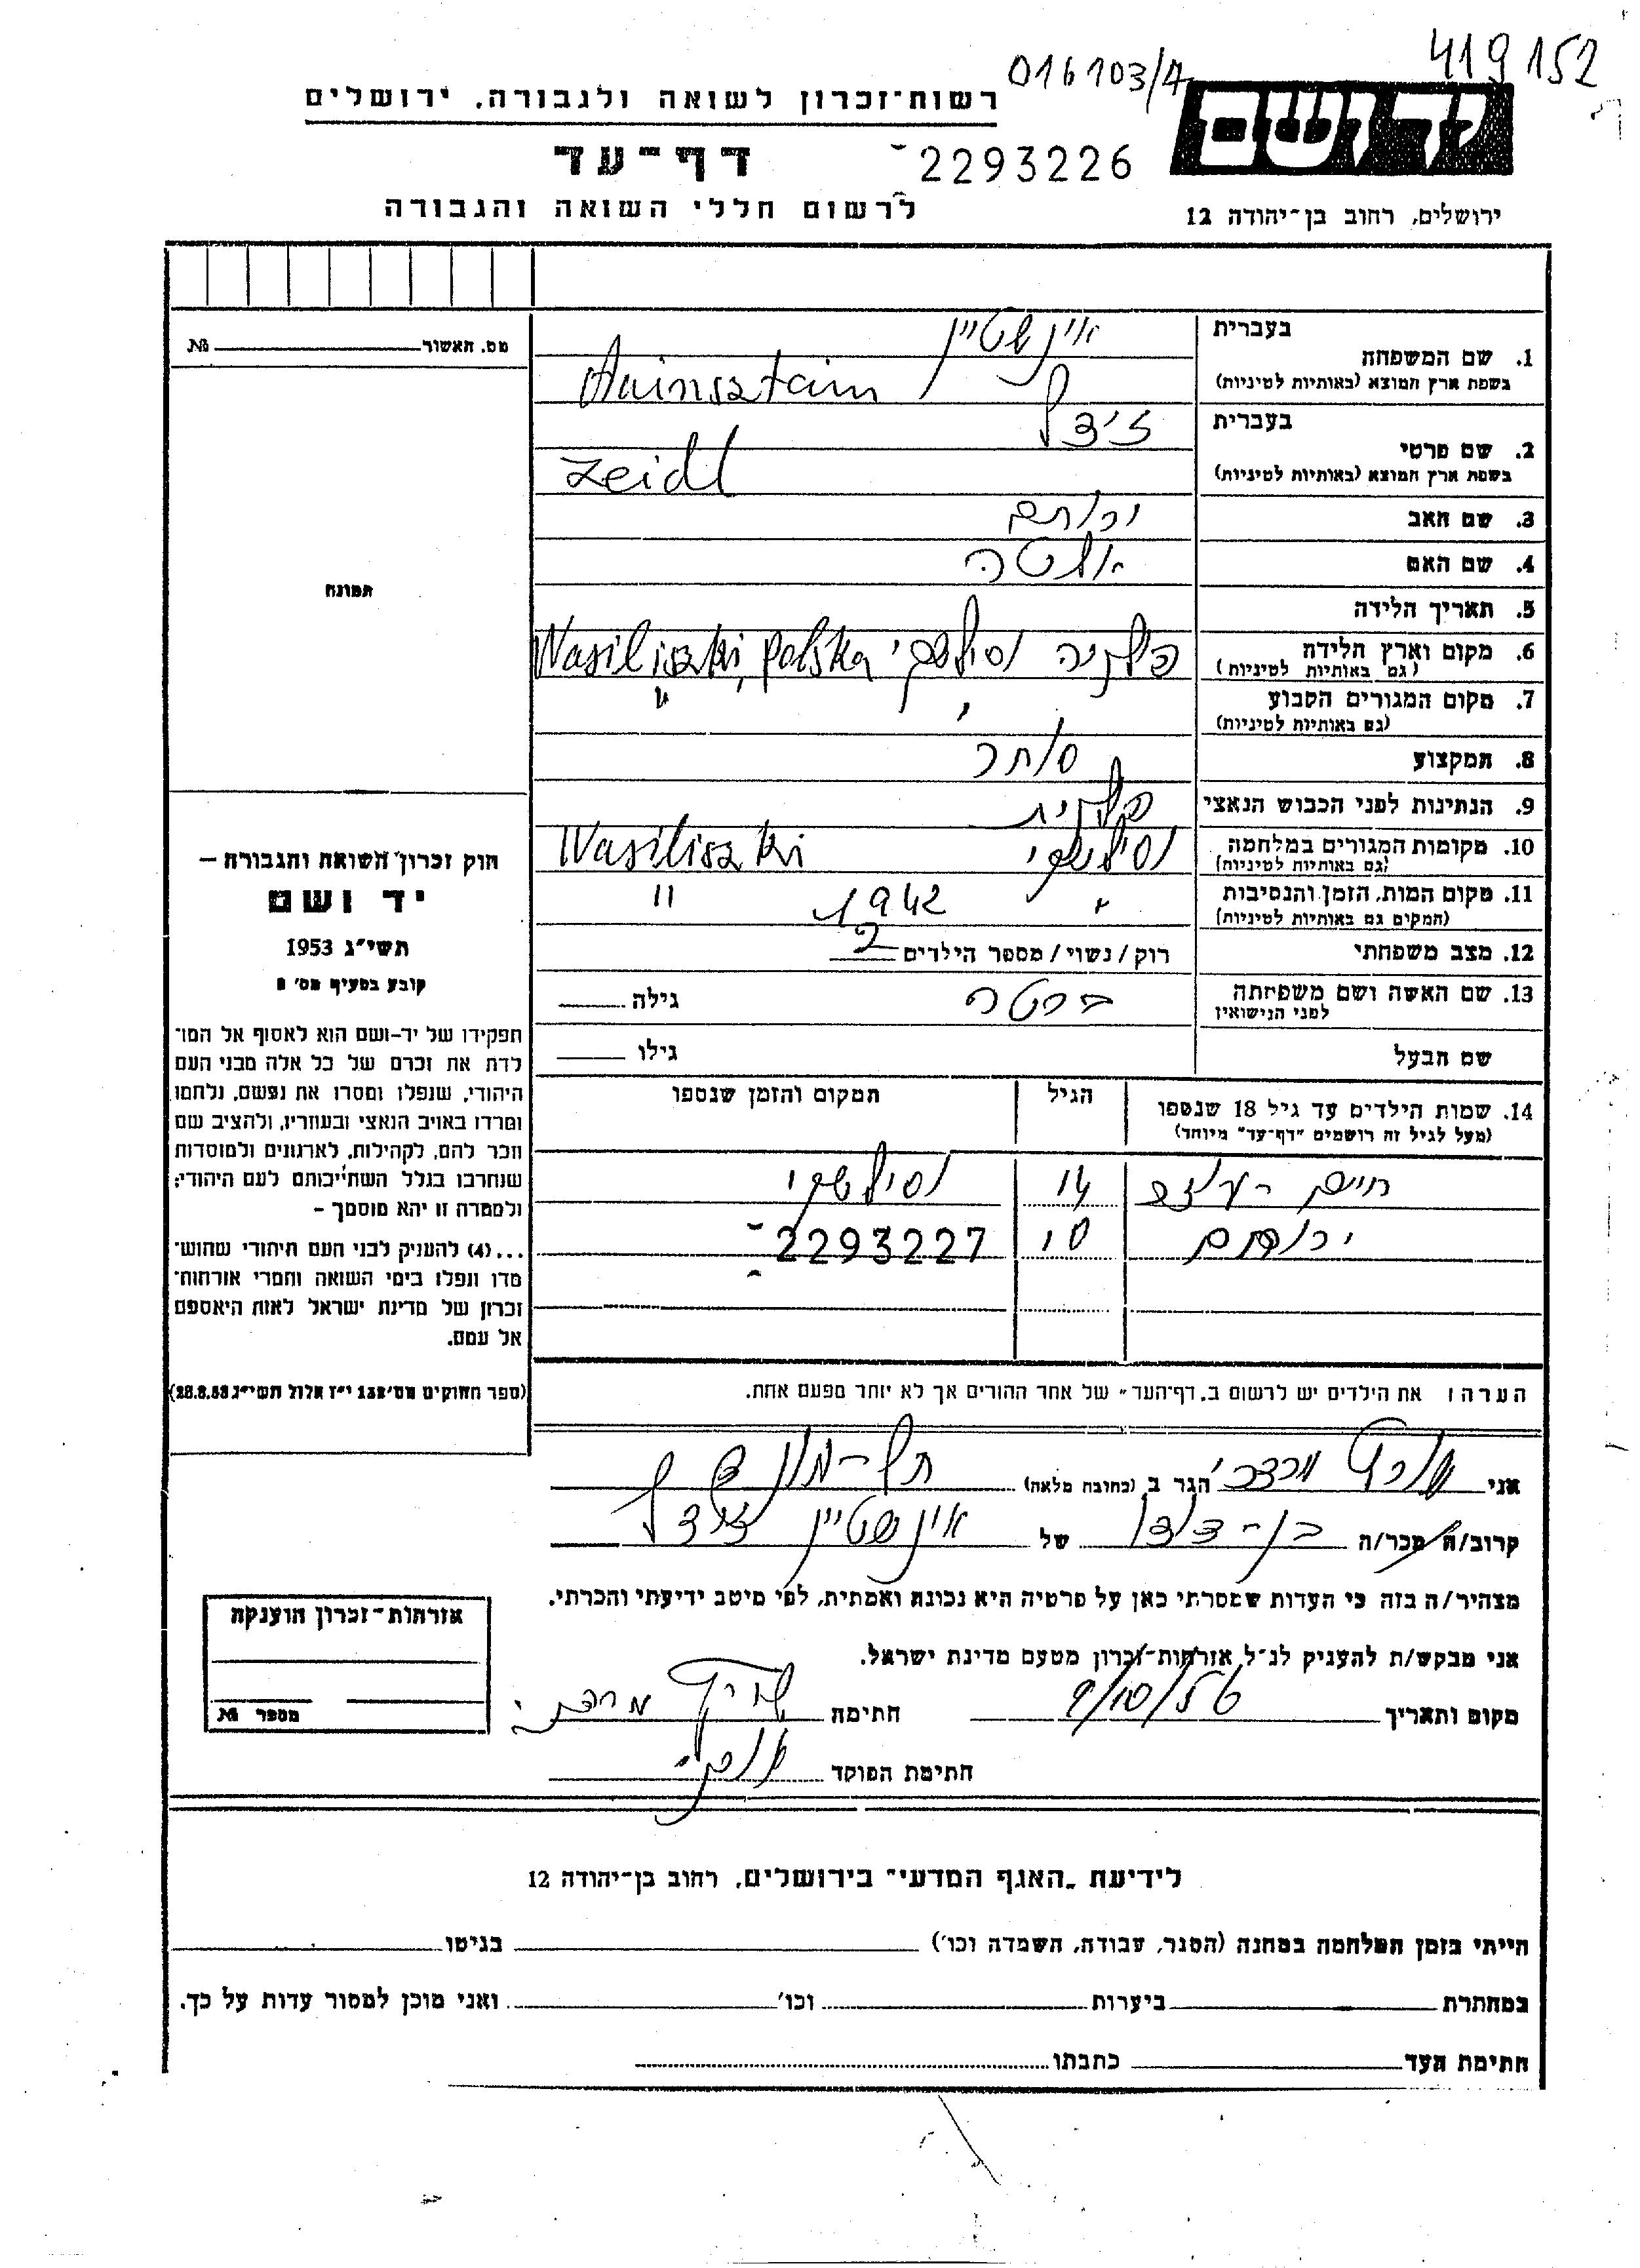 419152
016103/4
רשות־זכרון לשואה ולגבורה, ירושלים
יד ושם
דף־עד
2293226
לרשום חללי השואה והגבורה
ירושלים, רחוב בן־יהודה 12
בעברית
אינשטיין
1. שם המשפחה
בשפת ארץ המוצא (באותיות לטיניות)
Ainsztain
בעברית
זיידל
2. שם פרטי
בשפת ארץ המוצא (באותיות לטיניות)
Zeidl
3. שם האב
ירוחם
4. שם האם
אלטה
5. תאריך הלידה
6. מקום וארץ הלידה
(גם באותיות לטיניות)
Wasiliszki, Polska
7. מקום המגורים הקבוע
(גם באותיות לטיניות)
"
8. המקצוע
סוחר
9. הנתינות לפני הכבוש הנאצי
פולנית
10. מקומות המגורים במלחמה
(גם באותיות לטיניות)
וסילישקי Wasiliszki
11. מקום המות, הזמן והנסיבות
(המקום גם באותיות לטיניות)
" 1942 "
12. מצב משפחתי
רוק / נשוי / מספר הילדים 2
13. שם האשה ושם משפחתה
לפני הנישואין
ברטה
גילה
שם הבעל
גילו
14. שמות הילדים עד גיל 18 שנספו
(מעל לגיל זה רושמים "דף־עד" מיוחד)
הגיל
המקום והזמן שנספו
חיים 14 וסילישקי
ירוחם 10 2293227
הערה: את הילדים יש לרשום ב"דף־העד" של אחד ההורים אך לא יותר מפעם אחת.
מס. האשור №
תמונה
חוק זכרון השואה והגבורה –
יד ושם
תשי"ג 1953
קובע בסעיף מס' 2
תפקידו של יד-ושם הוא לאסוף אל המו־
לדת את זכרם של כל אלה מבני העם
היהודי, שנפלו ומסרו את נפשם, נלחמו
ומרדו באויב הנאצי ובעוזריו, ולהציב שם
וזכר להם, לקהילות, לארגונים ולמוסדות
שנחרבו בגלל השתייכותם לעם היהודי;
ולמטרה זו יהא מוסמך –
...(4) להעניק לבני העם היהודי שהוש־
מדו ונפלו בימי השואה והמרי אזרחות־
זכרון של מדינת ישראל לאות היאספם
אל עמם.
(ספר החוקים מס' 132 י"ז אלול תשי"ג 28.8.53)
אני הגר ב (כתובת מלאה)
קרוב/ה מכר/ה בן-דודו של אינשטיין זיידל
מצהיר/ה בזה כי העדות שמסרתי כאן על פרטיה היא נכונה ואמתית, לפי מיטב ידיעתי והכרתי.
אני מבקש/ת להעניק לנ"ל אזרחות־זכרון מטעם מדינת ישראל.
מקום ותאריך 9/10/56 חתימה
חתימת הפוקד
אזרחות־זכרון הוענקה
מספר №
לידיעת "האגף המדעי" בירושלים, רחוב בן־יהודה 12
הייתי בזמן המלחמה במחנה (הסגר, עבודה, השמדה וכו') בגיטו
במחתרת ביערות וכו' ואני מוכן למסור עדות על כך.
חתימת העד כתבתו